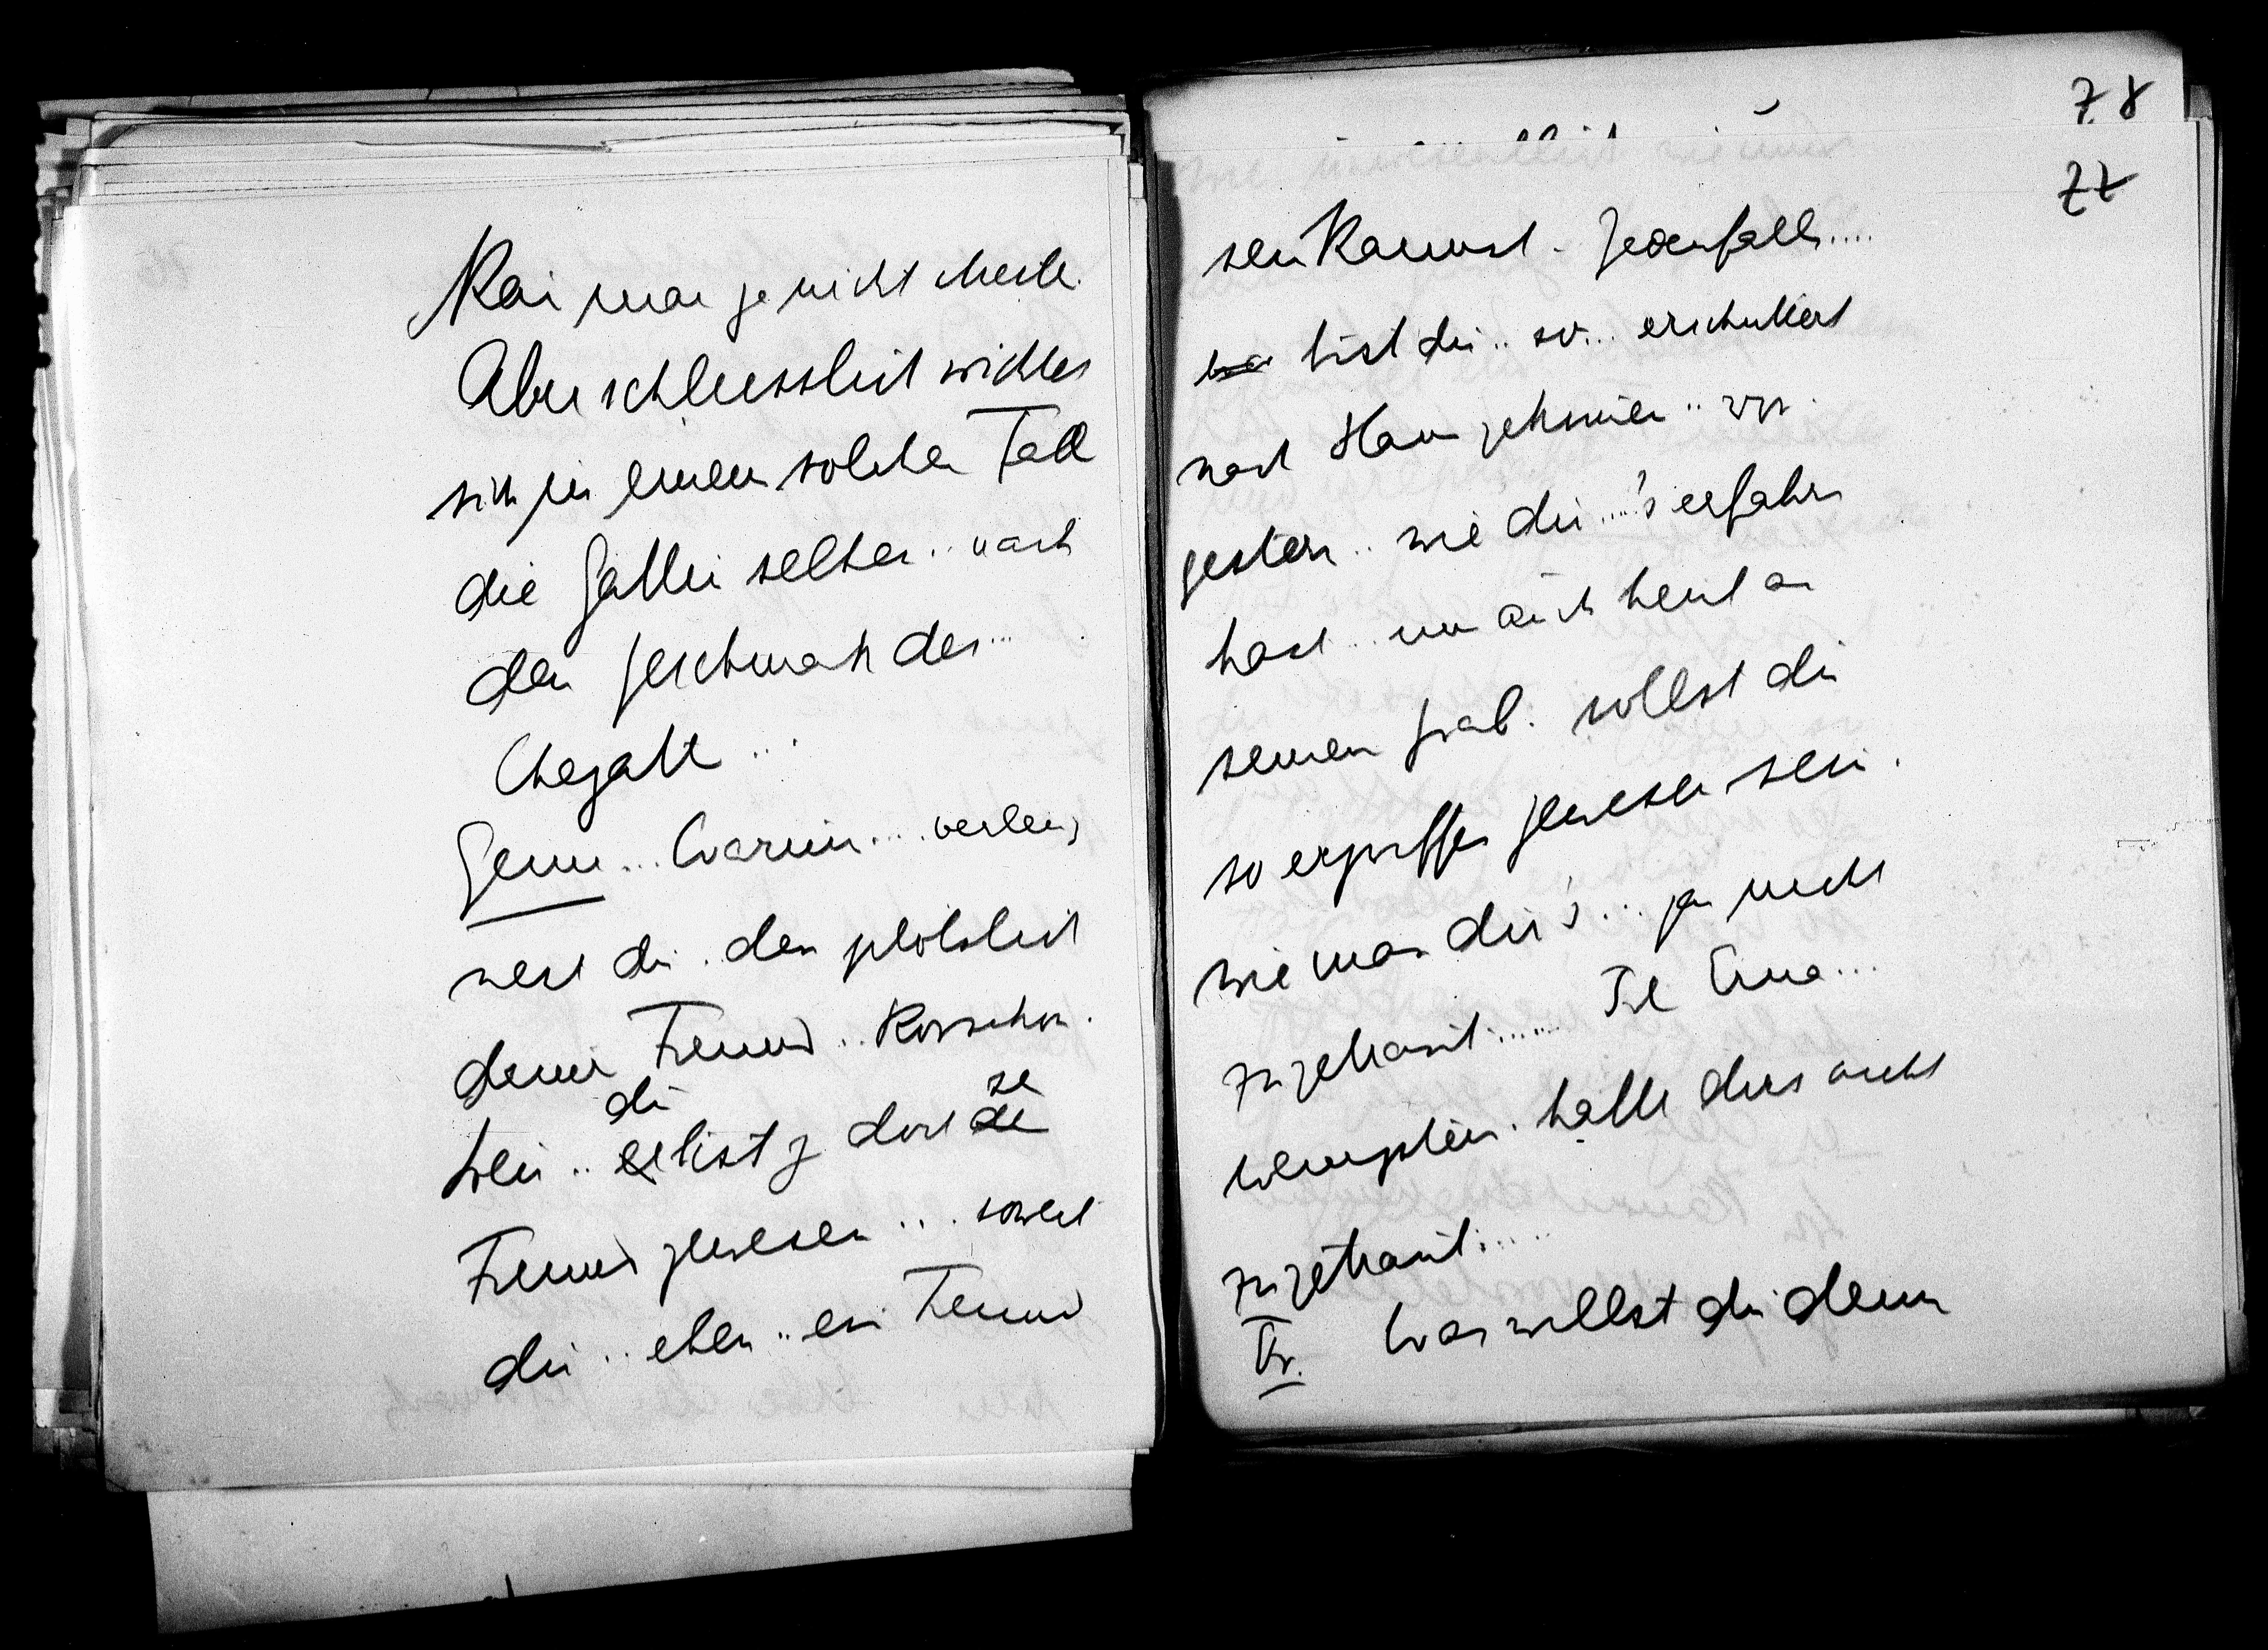 Kan man ja nicht
Aber schliesslich richtet
sich in einem solchen Fall
die Gattin selber .. nach
dem Geschmack des ...
Ehegatt ...
Genia ... Warum ... verleug
nest du . den plötzlich
deinen Freund .. Korsakow .
du se
bein .. er bist ja doch die
Freund gewesen ... soweit
du .. eben .. ein Freund
78
77
sein kannst . Jedenfalls ....
bist du .. so ... erschüttert
nach Haus gekommen .. vor
gestern .. wie du ....'s erfahren
hast .. und auch heut an
seinem Grab . sollst du
so ergriffen gewesen sein .
wie man dir's ... gar nicht
zugetraut ...... Erna ...
hätte dirs nicht
zugetraut .....
Fr. Was willst du denn